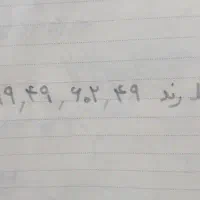 رند ۴۹,۶۰۲,۴۹